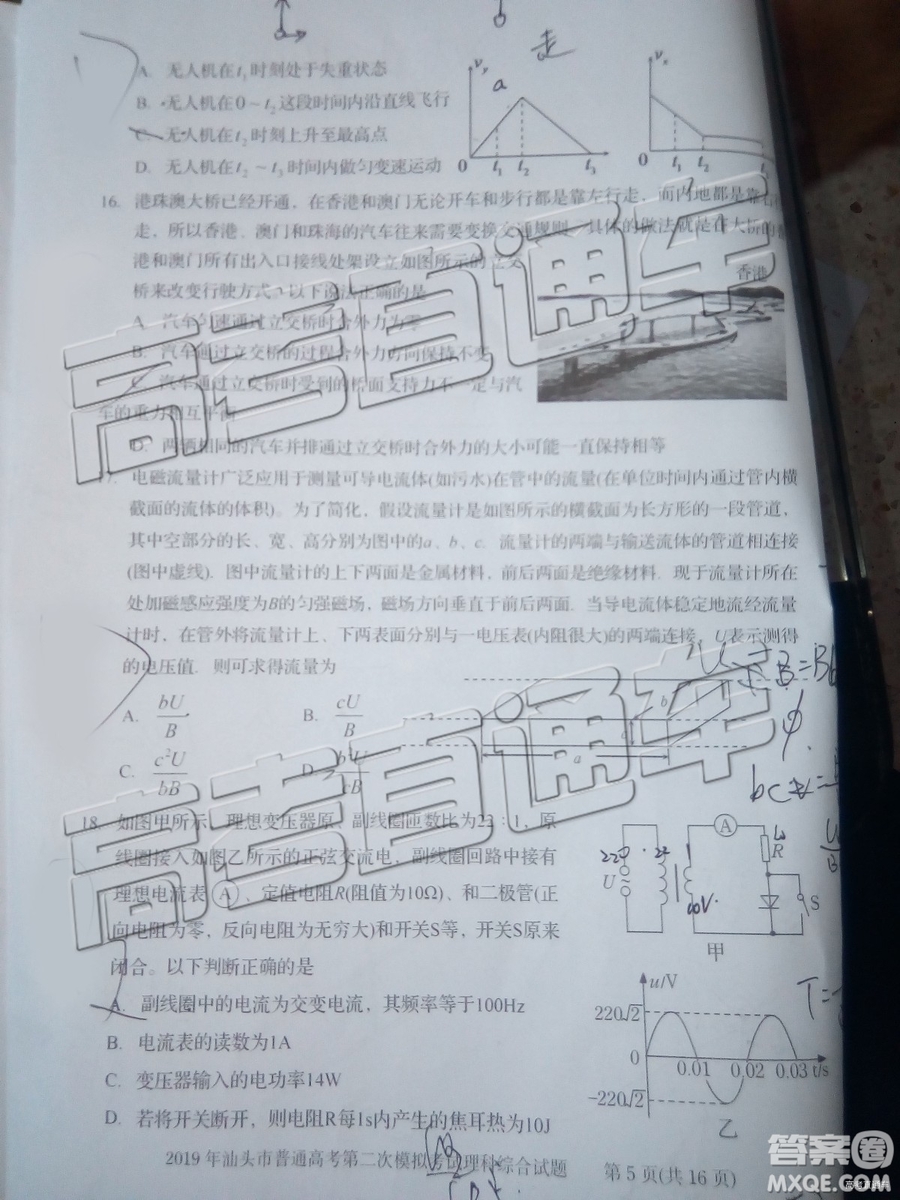 A. 无人机在t₁时刻处于失重状态
B. 无人机在0~t₂这段时间内沿直线飞行
C. 无人机在t₂时刻上升至最高点
D. 无人机在t₂~t₃时间内做匀变速运动
走
v_y
a
0 t₁ t₂ t₃
v_x
0 t₁ t₂
16. 港珠澳大桥已经开通，在香港和澳门无论开车和步行都是靠左行走，而内地都是靠右行
走，所以香港、澳门和珠海的汽车往来需要变换交通规则。具体的做法就是在大桥的
港和澳门所有出入口接线处架设立如图所示的立交
桥来改变行驶方式。以下说法正确的是
香港
A. 汽车匀速通过立交桥时合外力为零
B. 汽车通过立交桥的过程合外力方向保持不变
C. 汽车通过立交桥时受到的桥面支持力不一定与汽
车的重力相互平衡
D. 两辆相同的汽车并排通过立交桥时合外力的大小可能一直保持相等
17. 电磁流量计广泛应用于测量可导电流体(如污水)在管中的流量(在单位时间内通过管内横
截面的流体的体积)。为了简化，假设流量计是如图所示的横截面为长方形的一段管道，
其中空部分的长、宽、高分别为图中的a、b、c. 流量计的两端与输送流体的管道相连接
(图中虚线). 图中流量计的上下两面是金属材料，前后两面是绝缘材料. 现于流量计所在
处加磁感应强度为B的匀强磁场，磁场方向垂直于前后两面. 当导电流体稳定地流经流量
计时，在管外将流量计上、下两表面分别与一电压表(内阻很大)的两端连接，U表示测得
的电压值. 则可求得流量为
A. bU/B B. cU/B
C. c²U/bB D. b²U/cB
b
c
a
18. 如图甲所示，理想变压器原、副线圈匝数比为22：1，原
线圈接入如图乙所示的正弦交流电，副线圈回路中接有
理想电流表Ⓐ、定值电阻R(阻值为10Ω)、和二极管(正
向电阻为零，反向电阻为无穷大)和开关S等，开关S原来
闭合。以下判断正确的是
A. 副线圈中的电流为交变电流，其频率等于100Hz
B. 电流表的读数为1A
C. 变压器输入的电功率14W
D. 若将开关断开，则电阻R每1s内产生的焦耳热为10J
A
U
R
S
220
22
10V
甲
u/V
220√2
0 0.01 0.02 0.03 t/s
-220√2
乙
2019 年汕头市普通高考第二次模拟考试理科综合试题 第 5 页(共 16 页)
高考直通车
高考直通车
答案圈
MXQE.COM